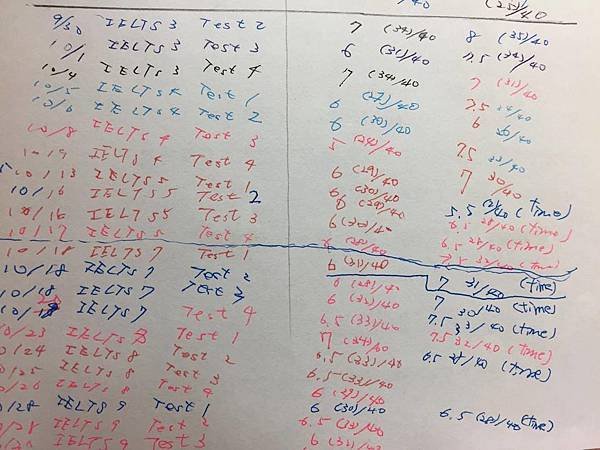 (25)/40
9/30 IELTS 3 Test 2 7 (34)/40 8 (35)/40
10/1 IELTS 3 Test 3 6 (31)/40 7.5 (34)/40
10/4 IELTS 3 Test 4 7 (34)/40 7 (31)/40
10/5 IELTS 4 Test 1 6 (27)/40 7.5 /40
10/6 IELTS 4 Test 2 6 (30)/40 6 /40
10/8 IELTS 4 Test 3 5 (24)/40 7.5 /40
10/9 IELTS 4 Test 4 6 (29)/40 7 30/40
10/13 IELTS 5 Test 1 6 (30)/40 5.5 /40 (time)
10/16 IELTS 5 Test 2 6 (29)/40 6.5 28/40 (time)
10/16 IELTS 5 Test 3 6 (30)/40 6.5 28/40 (time)
10/17 IELTS 5 Test 4 6 (28)/40 /40 (time)
10/18 IELTS 7 Test 1 6 (31)/40 7 31/40 (time)
10/18 IELTS 7 Test 2 6 (28)/40 7 30/40 (time)
10/18 IELTS 7 Test 3 6 (32)/40 7.5 33/40 (time)
IELTS 7 Test 4 6.5 (33)/40 7.5 32/40 (time)
10/23 IELTS 8 Test 1 7 (34)/40 6.5 /40 (time)
10/24 IELTS 8 Test 2 6.5 (33)/40
10/25 IELTS 8 Test 3 6.5 (33)/40
10/26 IELTS 8 Test 4 6 /40
10/28 IELTS 9 Test 1 6 (30)/40 6.5 (28)/40 (time)
10/28 IELTS 9 Test 2 6.5 (33)/40
IELTS 9 Test 3 6 (32)/40